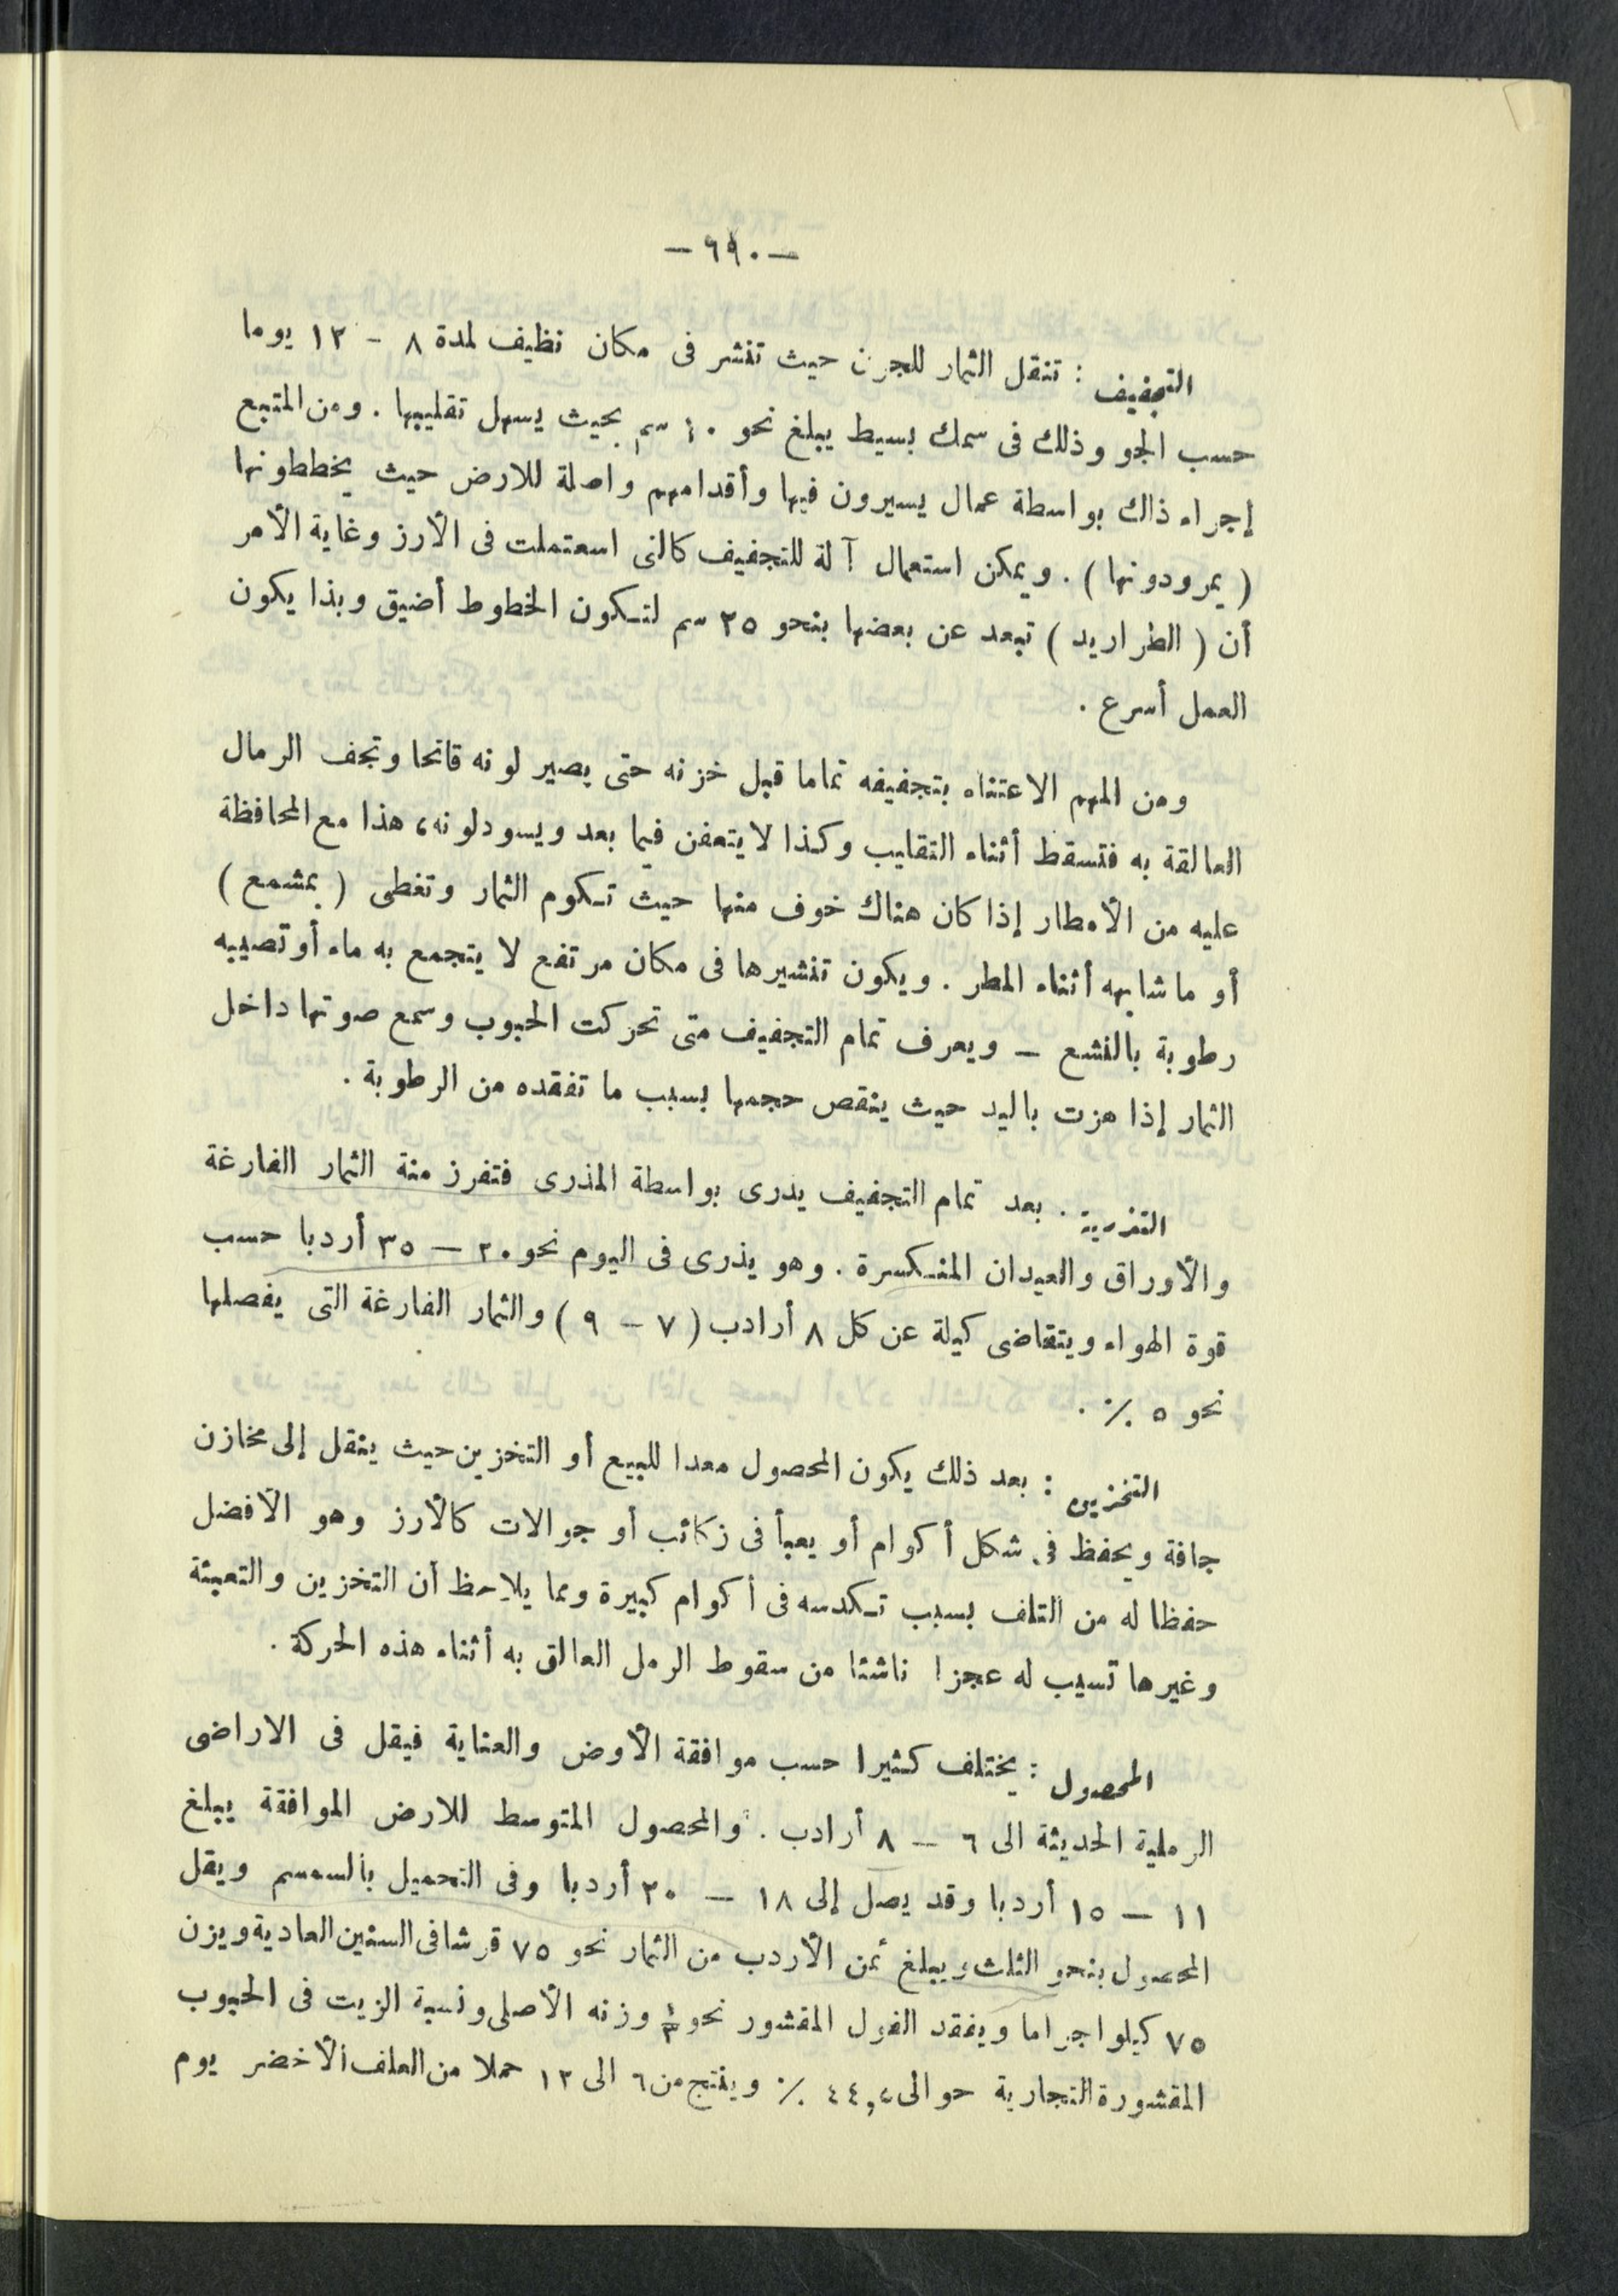 — ٦٩٠ —
التجفيف : تنقل الثمار للجرن حيث تنشر فى مكان نظيف لمدة ٨ - ١٢ يوما
حسب الجو وذلك فى سمك بسيط يبلغ نحو ١٠ سم بحيث يسهل تقليبها . ومن المتبع
إجراء ذلك بواسطة عمال يسيرون فيها وأقدامهم واصلة للارض حيث يخططونها
( يمرودونها ) . ويمكن استعمال آلة للتجفيف كالتى استعملت فى الأرز وغاية الأمر
أن ( الطراريد ) تبعد عن بعضها بنحو ٢٥ سم لتكون الخطوط أضيق وبذا يكون
العمل أسرع .
ومن المهم الاعتناء بتجفيفه تماما قبل خزنه حتى يصير لونه فاتحا وتجف الرمال
العالقة به فتسقط أثناء التقليب وكذا لا يتعفن فيما بعد ويسود لونه، هذا مع المحافظة
عليه من الأمطار إذا كان هناك خوف منها حيث تكوم الثمار وتغطى ( بمشمع )
أو ما شابهه أثناء المطر . ويكون تنشيرها فى مكان مرتفع لا يتجمع به ماء أو تصيبه
رطوبة بالنشع — ويعرف تمام التجفيف متى تحركت الحبوب وسمع صوتها داخل
الثمار إذا هزت باليد حيث ينقص حجمها بسبب ما تفقده من الرطوبة .
التذرية . بعد تمام التجفيف يذرى بواسطة المذرى فتفرز منة الثمار الفارغة
والأوراق والعيدان المنكسرة . وهو يذرى فى اليوم نحو ٢٠ — ٣٥ أردبا حسب
قوة الهواء ويتقاضى كيلة عن كل ٨ أرادب ( ٧ - ٩ ) والثمار الفارغة التى يفصلها
نحو ٥ ٪ .
التخزين : بعد ذلك يكون المحصول معدا للبيع أو التخزين حيث ينقل إلى مخازن
جافة ويحفظ فى شكل أكوام أو يعبأ فى زكائب أو جوالات كالأرز وهو الأفضل
حفظا له من التلف بسبب تكدسه فى أكوام كبيرة ومما يلاحظ أن التخزين والتعبئة
وغيرها تسبب له عجزا ناشئا من سقوط الرمل العالق به أثناء هذه الحركة .
المحصول : يختلف كثيرا حسب موافقة الأوض والعناية فيقل فى الاراضى
الرملية الحديثة الى ٦ — ٨ أرادب . والمحصول المتوسط للارض الموافقة يبلغ
١١ — ١٥ أردبا وقد يصل إلى ١٨ — ٢٠ أردبا وفى التحميل بالسمسم ويقل
المحصول بنحو الثلث ويبلغ ثمن الأردب من الثمار نحو ٧٥ قرشا فى السنين العادية ويزن
٧٥ كيلوا جراما ويفقد الفول المقشور نحو وزنه الأصلى ونسبة الزيت فى الحبوب
المقشورة التجارية حوالى ٪ وينتج من ٦ الى ١٢ حملا من العلف الأخضر يوم